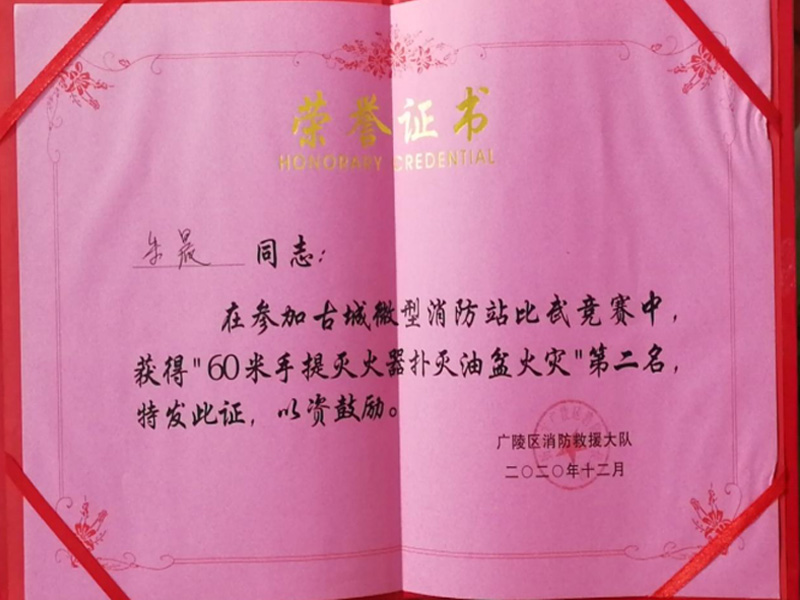 荣誉证书
HONORARY CREDENTIAL
晟 同志：
在参加古城微型消防站比武竞赛中，
获得"60米手提灭火器扑灭油盆火灾"第二名，
特发此证，以资鼓励。
广陵区消防救援大队
二〇二〇年十二月